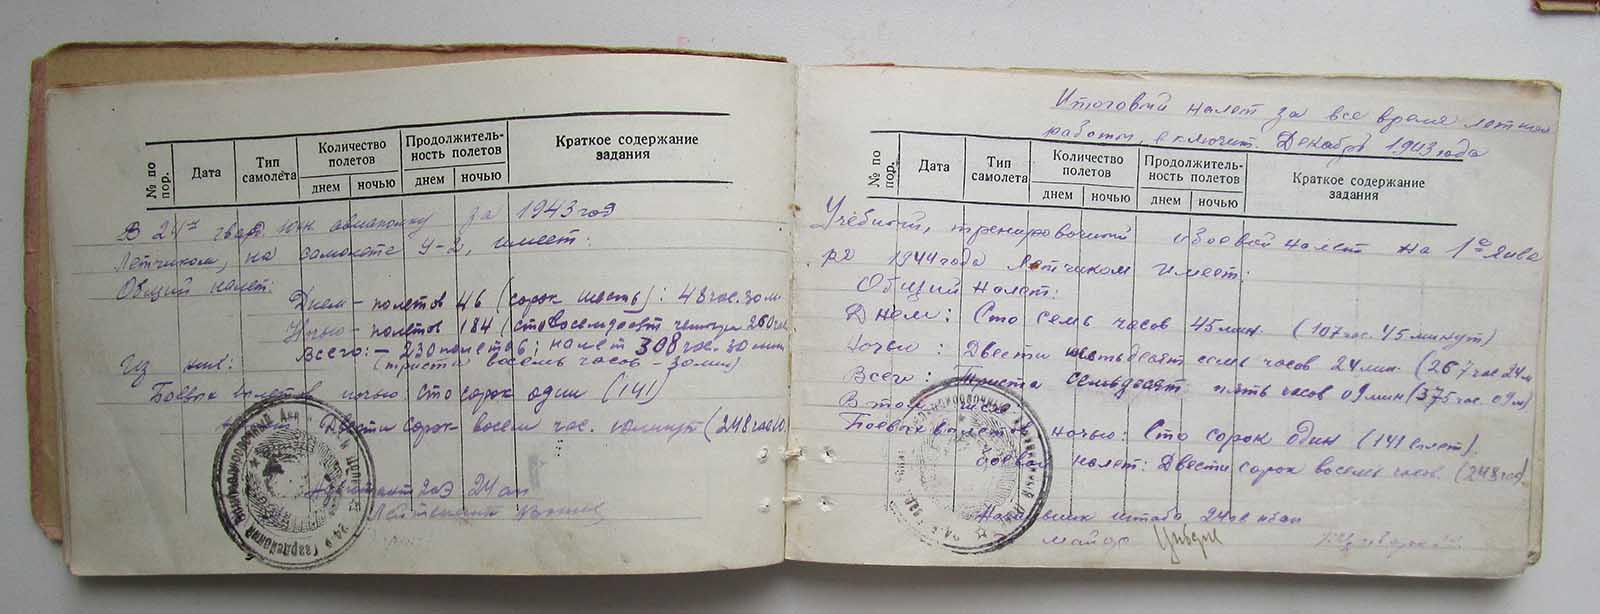 № по пор.
Дата
Тип самолёта
Количество полетов
днем
ночью
Продолжитель-
ность полетов
днем
ночью
Краткое содержание
задания
В 24м гвар авиаполку за 1943 год
Летчиком, на самолете У-2, имеет:
Общий налет:
Днем - полетов 46 (сорок шесть): 48 час. 30 м.
Ночью - полетов 184 (сто восемдесят четыре 260 час
Всего: - 230 полетов; налет 308 час. 30 мин
(триста восемь часов - 30 мин)
Из них:
Боевых вылетов ночью сто сорок один (141)
Двести сорок восем час. (248 час
24 ап
Лейтенант
24-й Гвардейский
Итоговый налет за все время летной
работы, включит. Декабрь 1943 года
№ по пор.
Дата
Тип самолёта
Количество полетов
днем
ночью
Продолжитель-
ность полетов
днем
ночью
Краткое содержание
задания
Учебный, тренировочный и боевой налет на 1е Янва
ря 1944 года Летчиком имеет:
Общий налет:
Днем: Сто семь часов 45 мин. (107 час. 45 минут)
Ночью: Двести шестьдесят семь часов 24 мин. (267 час 24 м
Всего: Триста семьдесят пять часов 09 мин (375 час. 09 м)
В том числе
Боевых вылетов ночью: Сто сорок один (141 вылет)
боевой налет: Двести сорок восемь часов (248 час)
Начальник штаба 24
майор